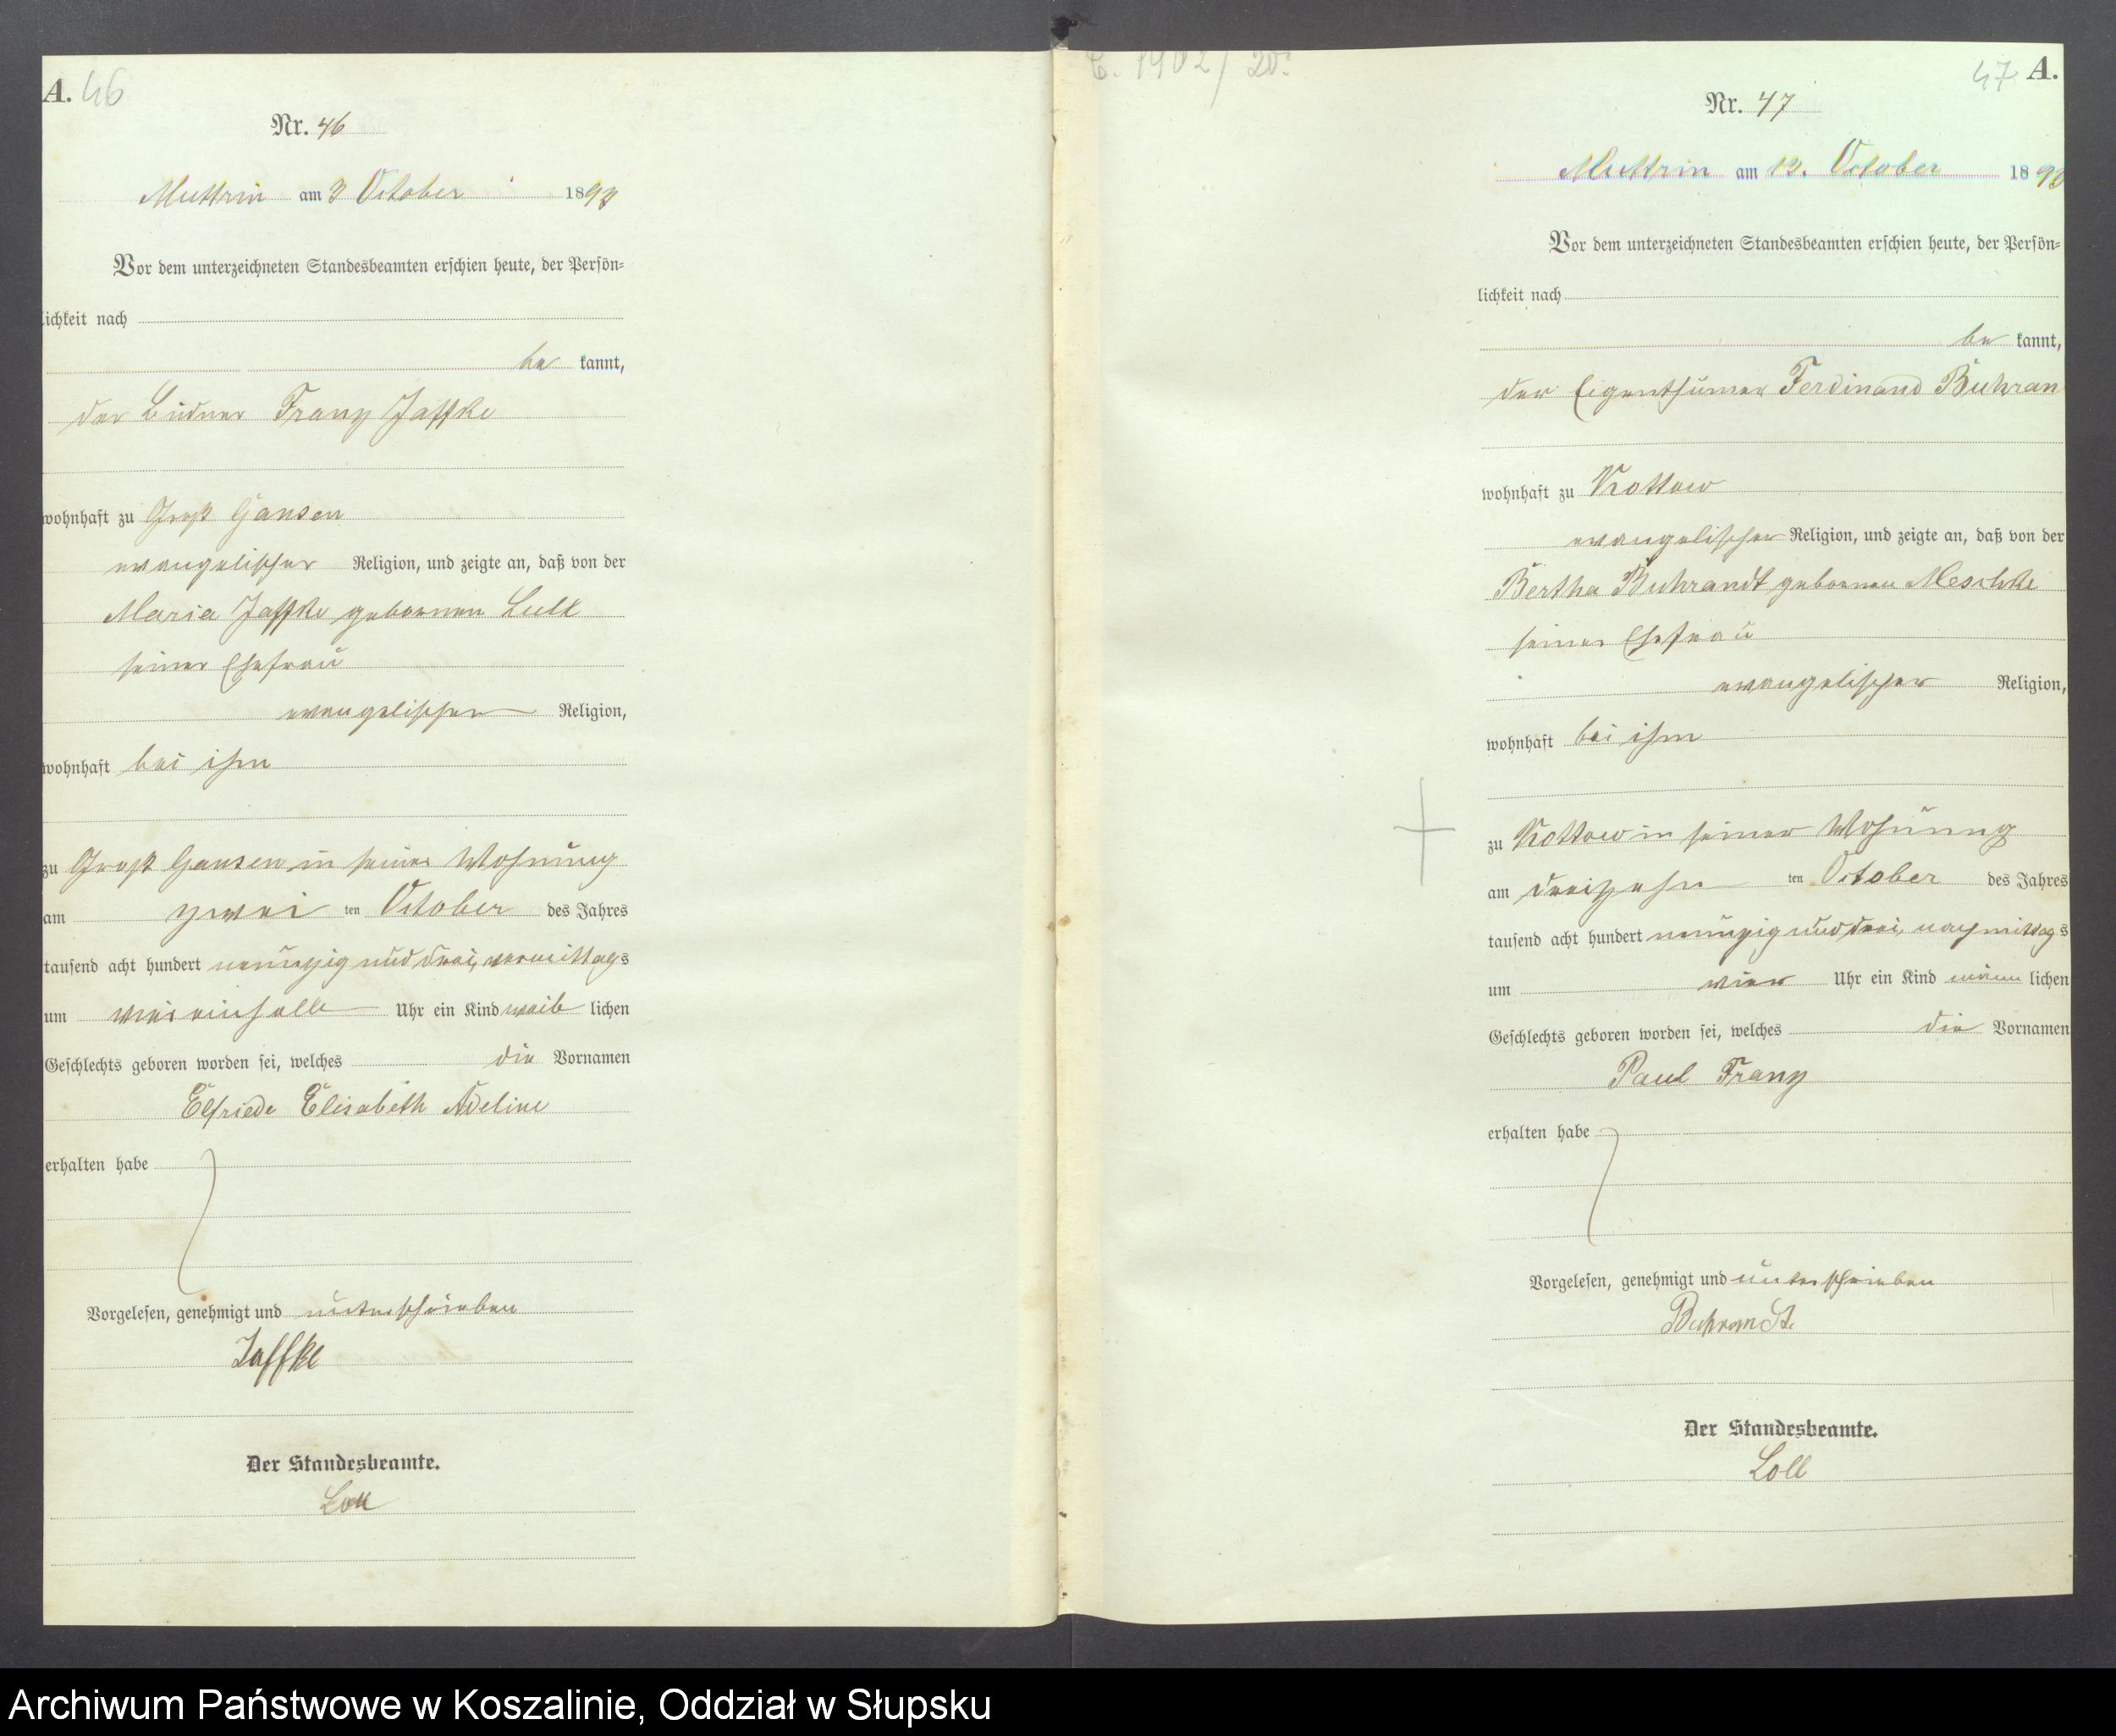 A. 46
Nr. 46
Muttrin am 3 October 1893
Vor dem unterzeichneten Standesbeamten erschien heute, der Persön-
lichkeit nach
be kannt,
der Büdner Franz Jaffke
wohnhaft zu Groß Gansen
evangelischer Religion, und zeigte an, daß von der
Maria Jaffke gebornen Lull
seiner Ehefrau
evangelischer Religion,
wohnhaft bei ihm
zu Groß Gansen in seiner Wohnung
am zwei ten October des Jahres
tausend acht hundert neunzig und drei, vormittags
um einhalb Uhr ein Kind weib lichen
Geschlechts geboren worden sei, welches die Vornamen
Elfriede Elisabeth Adeline
erhalten habe
Vorgelesen, genehmigt und unterschrieben
Jaffke
Der Standesbeamte.
Loll
C. 1902/20:
47 A.
Nr. 47
Muttrin am 13. October 1893
Vor dem unterzeichneten Standesbeamten erschien heute, der Persön-
lichkeit nach
be kannt,
der Eigenthümer Ferdinand Buhran
wohnhaft zu Kottow
evangelischer Religion, und zeigte an, daß von der
Bertha Buhrandt gebornen Meschke
seiner Ehefrau
evangelischer Religion,
wohnhaft bei ihm
zu Kottow in seiner Wohnung
am dreizehn ten October des Jahres
tausend acht hundert neunzig und drei, nachmittags
um vier Uhr ein Kind männ lichen
Geschlechts geboren worden sei, welches die Vornamen
Paul Franz
erhalten habe
Vorgelesen, genehmigt und unterschrieben
Buhrandt
Der Standesbeamte.
Loll
Archiwum Państwowe w Koszalinie, Oddział w Słupsku